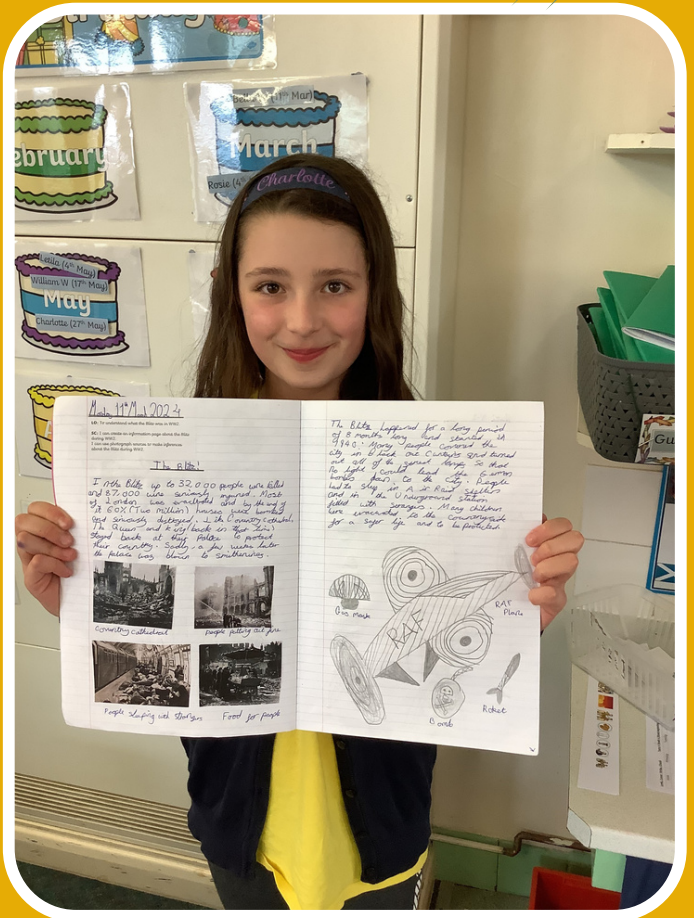 ebruary
(11th Mar)
March
Rosie (4
Charlotte
Leila (4th May)
William W (17th May)
May
Charlotte (27th May)
Gu
Monday 11th March 2024
LO: To understand what the Blitz was in WW2.
SC: I can create an information page about the Blitz
during WW2.
I can use photograph sources to make inferences
about the Blitz during WW2.
The Blitz!
In the Blitz up to 32,000 people were killed
and 87,000 were seriously injured. Most
of London was evactuated and by the end of
it 60% (Two million) houses were bombed
and seriously distroyed. Like Coventry Cathedral.
The Queen and King (back in that time)
stayed back at they Palace to protect
their country. Sadly, a few weeks later
the palace was blown to smitherines.
Coventry Cathedral
People putting out fire
People sleeping with strangers
Food for people
The Blitz happened for a long period
of 8 months long and started in
1940. Many people covered the
city in black out curtains and turned
out all of the street lamps so that
no light could lead the German
bombs down to the City. People
had to sleep in Air Raid Shelters
and in the Underground Station
filled with strangers. Many children
were evacuated to the countryside
for a safer life and to be protected.
Gas Mask
RAF
RAF
Plane
Bomb
Roket